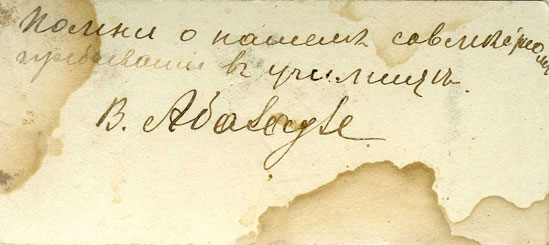 Помни о нашемъ совмѣстномъ
пребываніи въ училищѣ.
В.